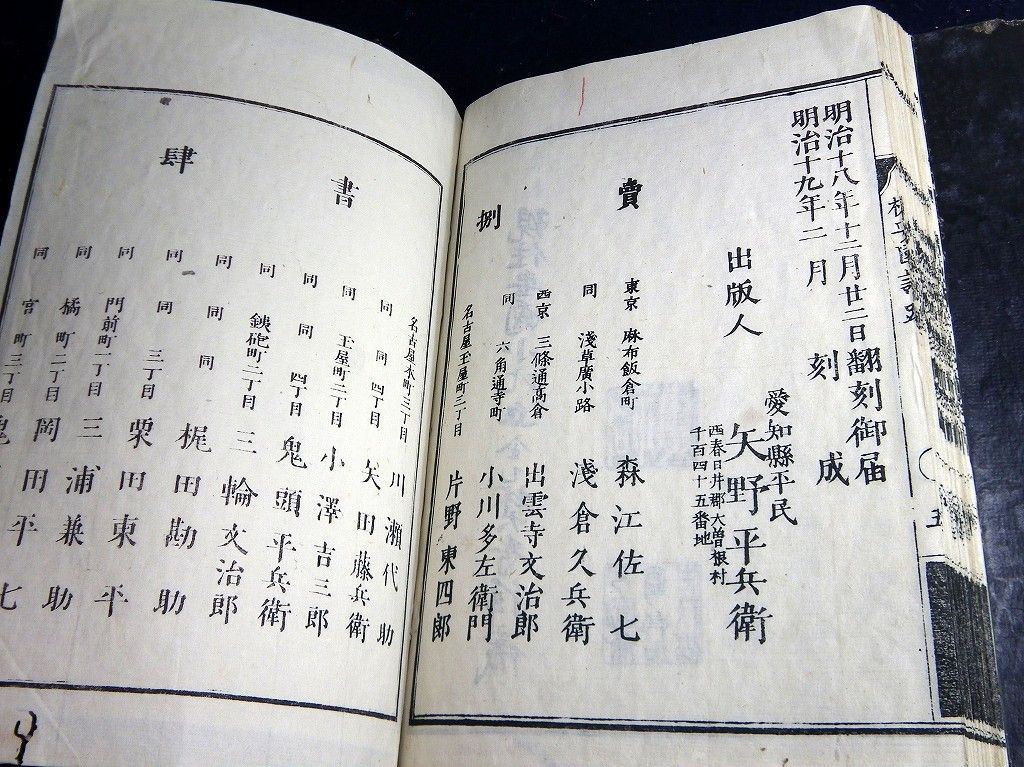 明治十八年十二月廿二日翻刻御届
明治十九年二月 刻成
愛知縣平民
出版人 矢野平兵衛
西春日井郡大曽根村
千百四十五番地
賣捌
東京 麻布飯倉町 森江佐七
同 淺草廣小路 淺倉久兵衛
西京 三條通高倉 出雲寺文治郎
同 六角通寺町 小川多左衛門
名古屋玉屋町三丁目 片野東四郎
書肆
名古屋本町三丁目 川瀬代助
同 同 四丁目 矢田藤兵衛
同 玉屋町三丁目 小澤吉三郎
同 同 四丁目 鬼頭平兵衛
同 鉄砲町二丁目 三輪文治郎
同 同 梶田勘助
同 同 三丁目 栗田東平
同 門前町一丁目 三浦兼助
同 橘町二丁目 岡田平助
同 宮町三丁目 七
五